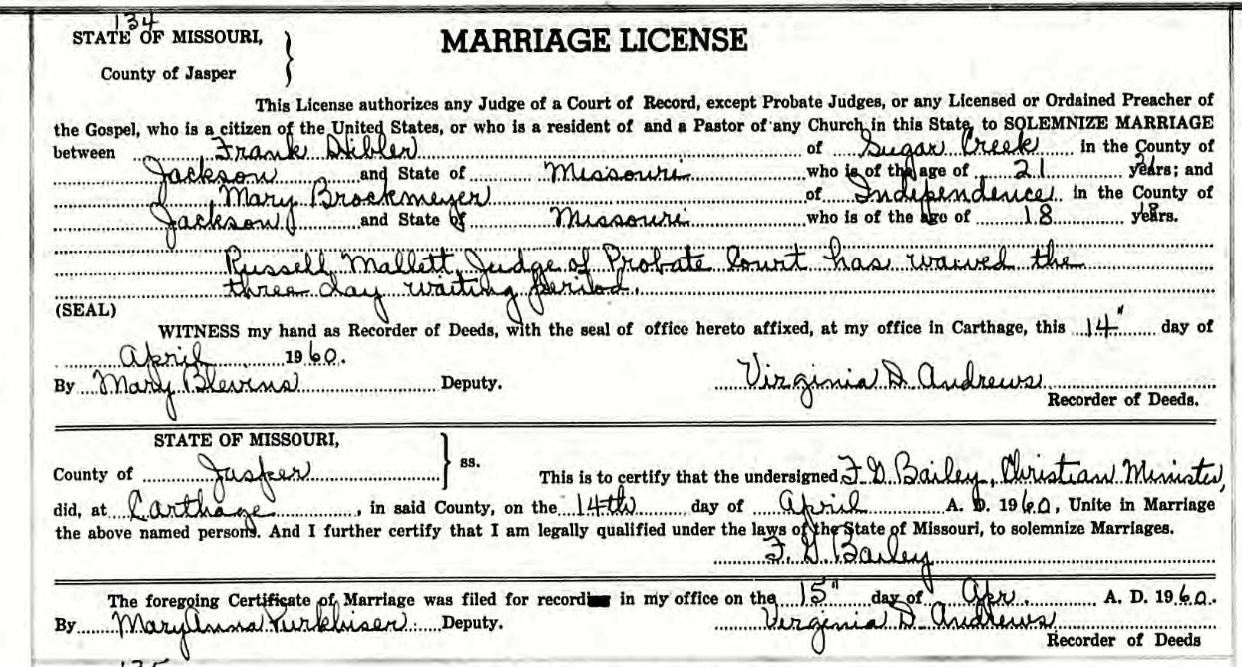 134
STATE OF MISSOURI,
County of Jasper
MARRIAGE LICENSE
This License authorizes any Judge of a Court of Record, except Probate Judges, or any Licensed or Ordained Preacher of
the Gospel, who is a citizen of the United States, or who is a resident of and a Pastor of any Church in this State, to SOLEMNIZE MARRIAGE
between Frank Hibler of Sugar Creek in the County of
Jackson and State of Missouri who is of the age of 21 years; and
Mary Brockmeyer of Independence in the County of
Jackson and State of Missouri who is of the age of 18 years.
Russell Mallett, Judge of Probate Court has waived the
three day waiting period.
(SEAL)
WITNESS my hand as Recorder of Deeds, with the seal of office hereto affixed, at my office in Carthage, this 14" day of
April 1960.
By Mary Blevins Deputy. Virginia D. Andrews
Recorder of Deeds.
STATE OF MISSOURI,
County of Jasper } ss. This is to certify that the undersigned F. G. Bailey, Christian Minister,
did, at Carthage, in said County, on the 14th day of April A. D. 1960, Unite in Marriage
the above named persons. And I further certify that I am legally qualified under the laws of the State of Missouri, to solemnize Marriages.
F. G. Bailey
The foregoing Certificate of Marriage was filed for record in my office on the 15" day of Apr. A. D. 1960.
By Mary Anna Purkhiser Deputy. Virginia D. Andrews
Recorder of Deeds
135